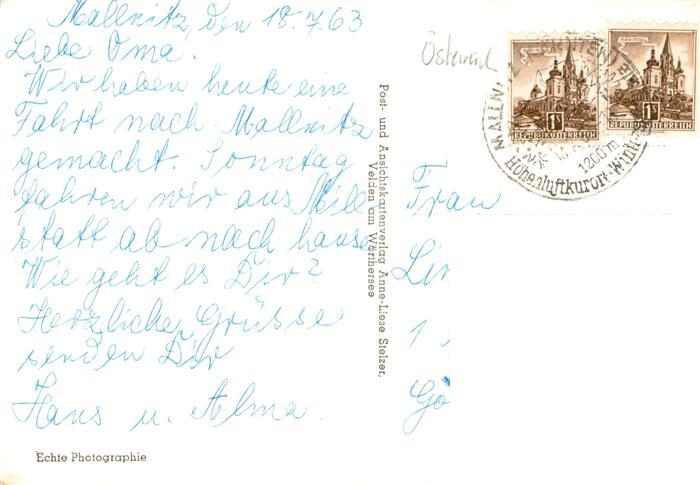 Mallnitz, den 18.7.63
Liebe Oma.
Wir haben heute eine
Fahrt nach Mallnitz
gemacht. Sonntag
fahren wir aus Mill
statt ab nach hause
Wie geht es Dir?
Herzliche Grüsse
senden Dir
Hans u. Alma.
Echte Photographie
Post- und Ansichtskartenverlag Anne-Liese Stelzer,
Velden am Wörthersee
Österreich
MARIAZELL
1S
REPUBLIK ÖSTERREICH
MARIAZELL
1S
REPUBLIK ÖSTERREICH
1200 m
Höhenluftkurort
Frau
1